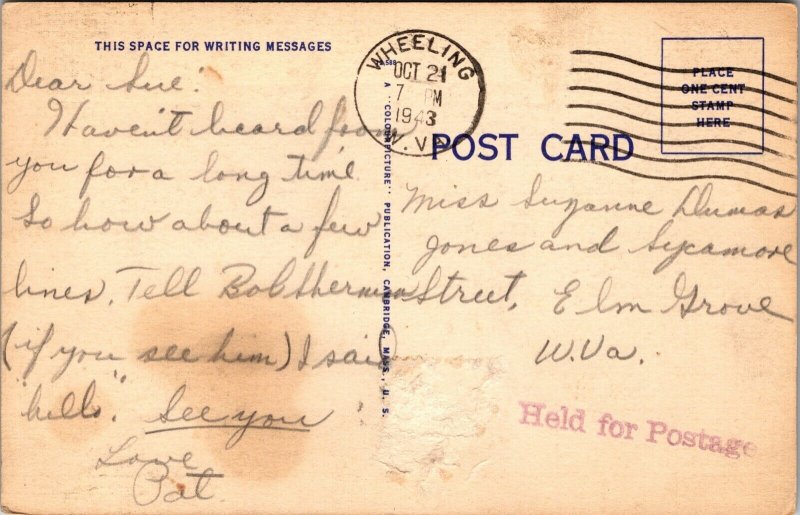 THIS SPACE FOR WRITING MESSAGES
Dear Sue:
Haven't heard from
you for a long time
So how about a few
lines. Tell Bob Sherman
(if you see him) I said
"hello." See you
Love
Pat.
A "COLOURPICTURE" PUBLICATION, CAMBRIDGE, MASS., U. S.
WHEELING
OCT 21
7 PM
1943
W. VA.
PLACE
ONE CENT
STAMP
HERE
POST CARD
Miss Suzanne Dumas
Jones and Sycamore
Street, Elm Grove
W. Va.
Held for Postage